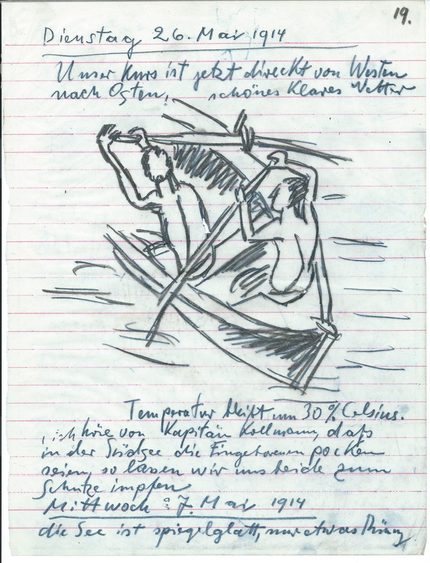 19.
Dienstag 26. Mai 1914
Unser Kurs ist jetzt direkt von Westen
nach Osten, schönes klares Wetter
Temperatur bleibt um 30% Celsius.
ich höre von Kapitän Kollmann, daß
in der Südsee die Eingeborenen pocken
seien, so lassen wir uns beide zum
Schutze impfen
Mittwoch 27. Mai 1914
die See ist spiegelglatt, nur etwas